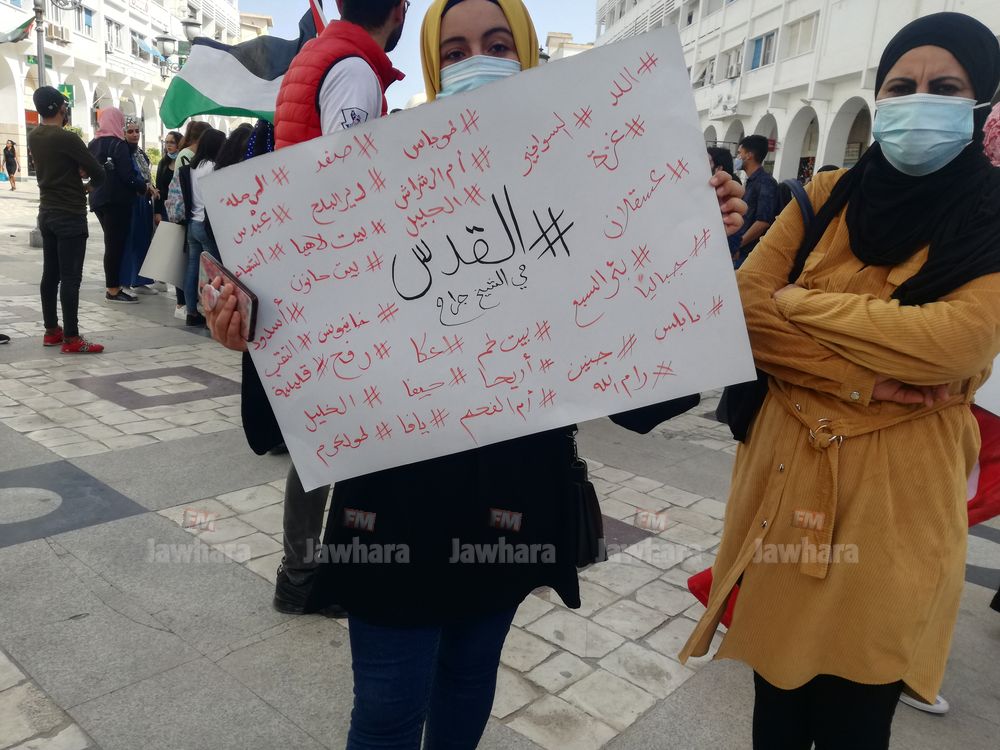 #القدس
في الشيخ جراح
#اللد
#السوافير
#غزة
#عسقلان
#بئر السبع
#جباليا
#نابلس
#جنين
#رام الله
#طوباس
#أم الشراش
#الجليل
#صفد
#دير البلح
#بيت لاهيا
#بيت حانون
#خانيونس
#رفح
#عكا
#بيت لحم
#أريحا
#حيفا
#الخليل
#أم الفحم
#يافا
#طولكرم
#الرملة
#النقب
#قلقيلية
FM Jawhara
FM Jawhara
FM Jawhara
FM Jawhara
FM Jawhara